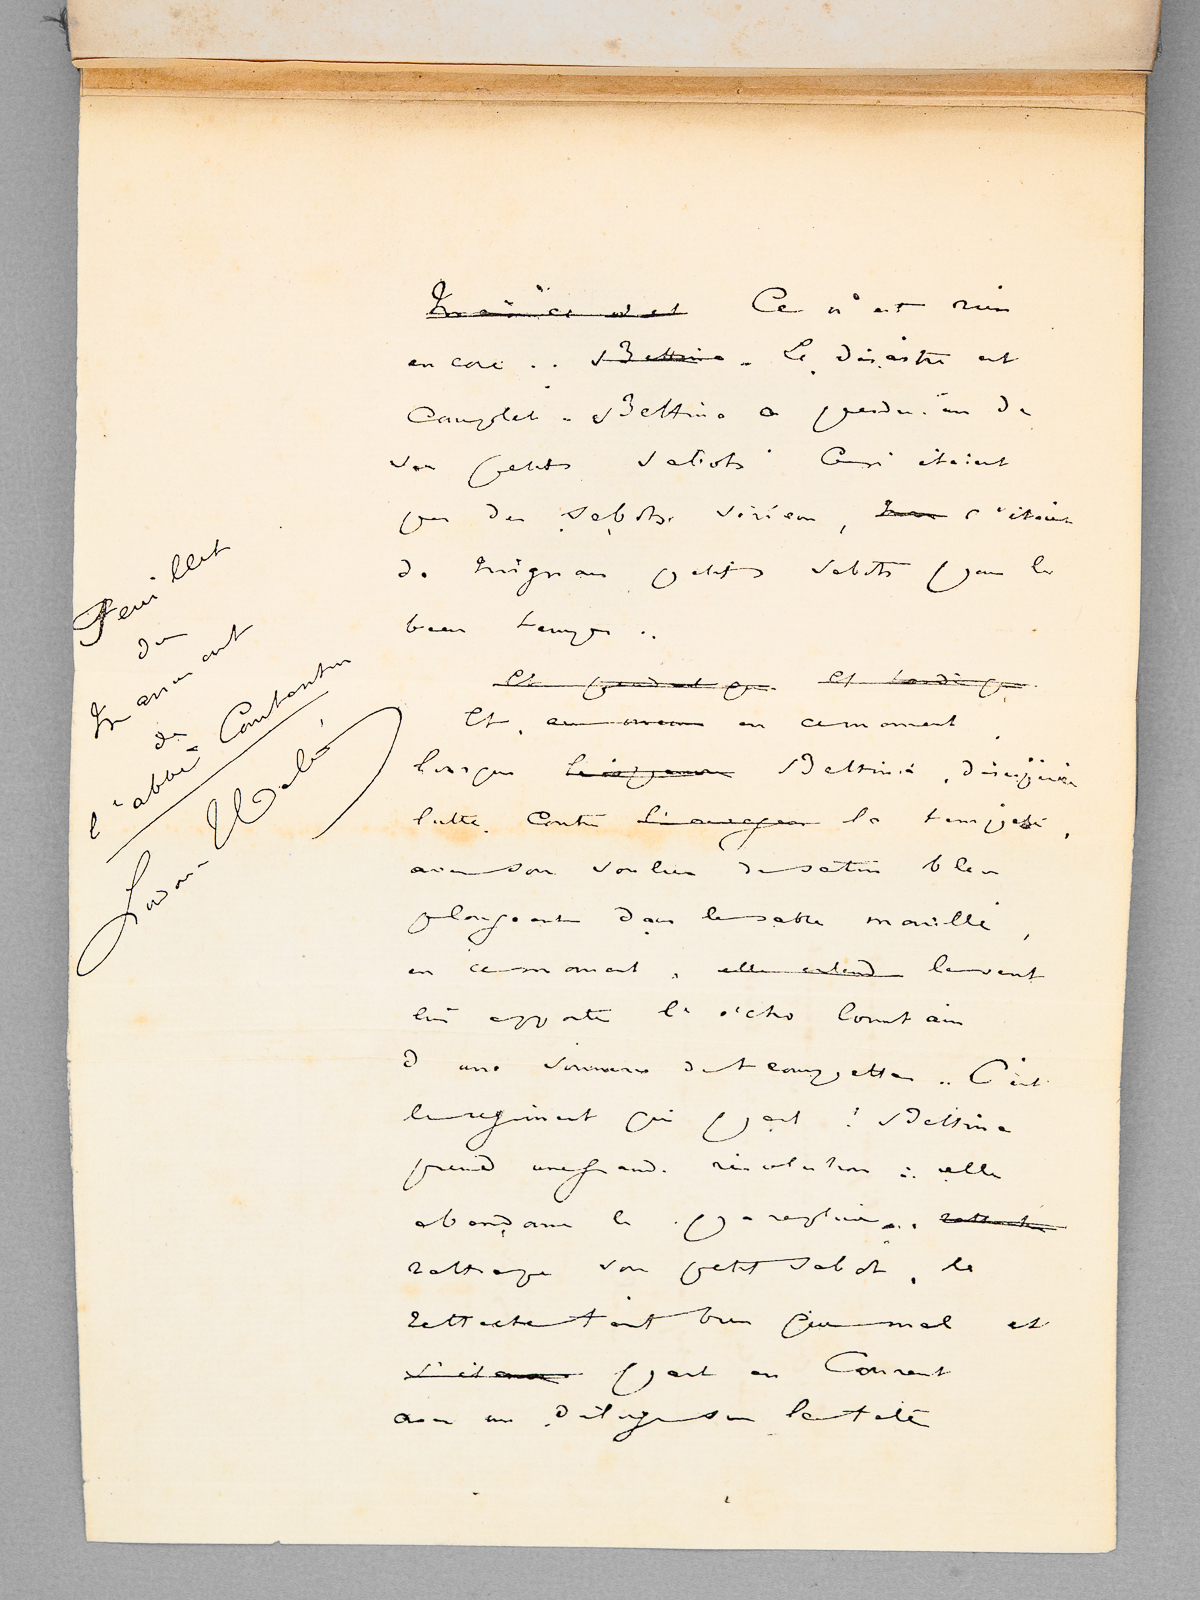 Ce n'est rien
encore .. Bettina . Le désastre est
complet . Bettina a perdu un de
ses petits sabots Ce n'étaient
pas des sabots sérieux, c'étaient
de mignons petits sabots pour le
beau temps ..
Et pendant que Et tandis que
Et, au moment en ce moment
lorsque Bettina, désespérée
lutte contre l'ouragan la tempête,
avec son soulier de satin bleu
plongeant dans le sable mouillé,
en ce moment, elle entend le vent
lui apporte l'écho lointain
d'une sonnerie de trompettes .. C'est
le régiment qui part ! Bettina
prend une grande résolution : elle
abandonne le parapluie ..
rattrape son petit sabot, le
rattache tant bien que mal et
part en courant
avec un déluge sur la tête
Feuillet
du
manuscrit
de
l'abbé Constantin
Ludovic Halévy